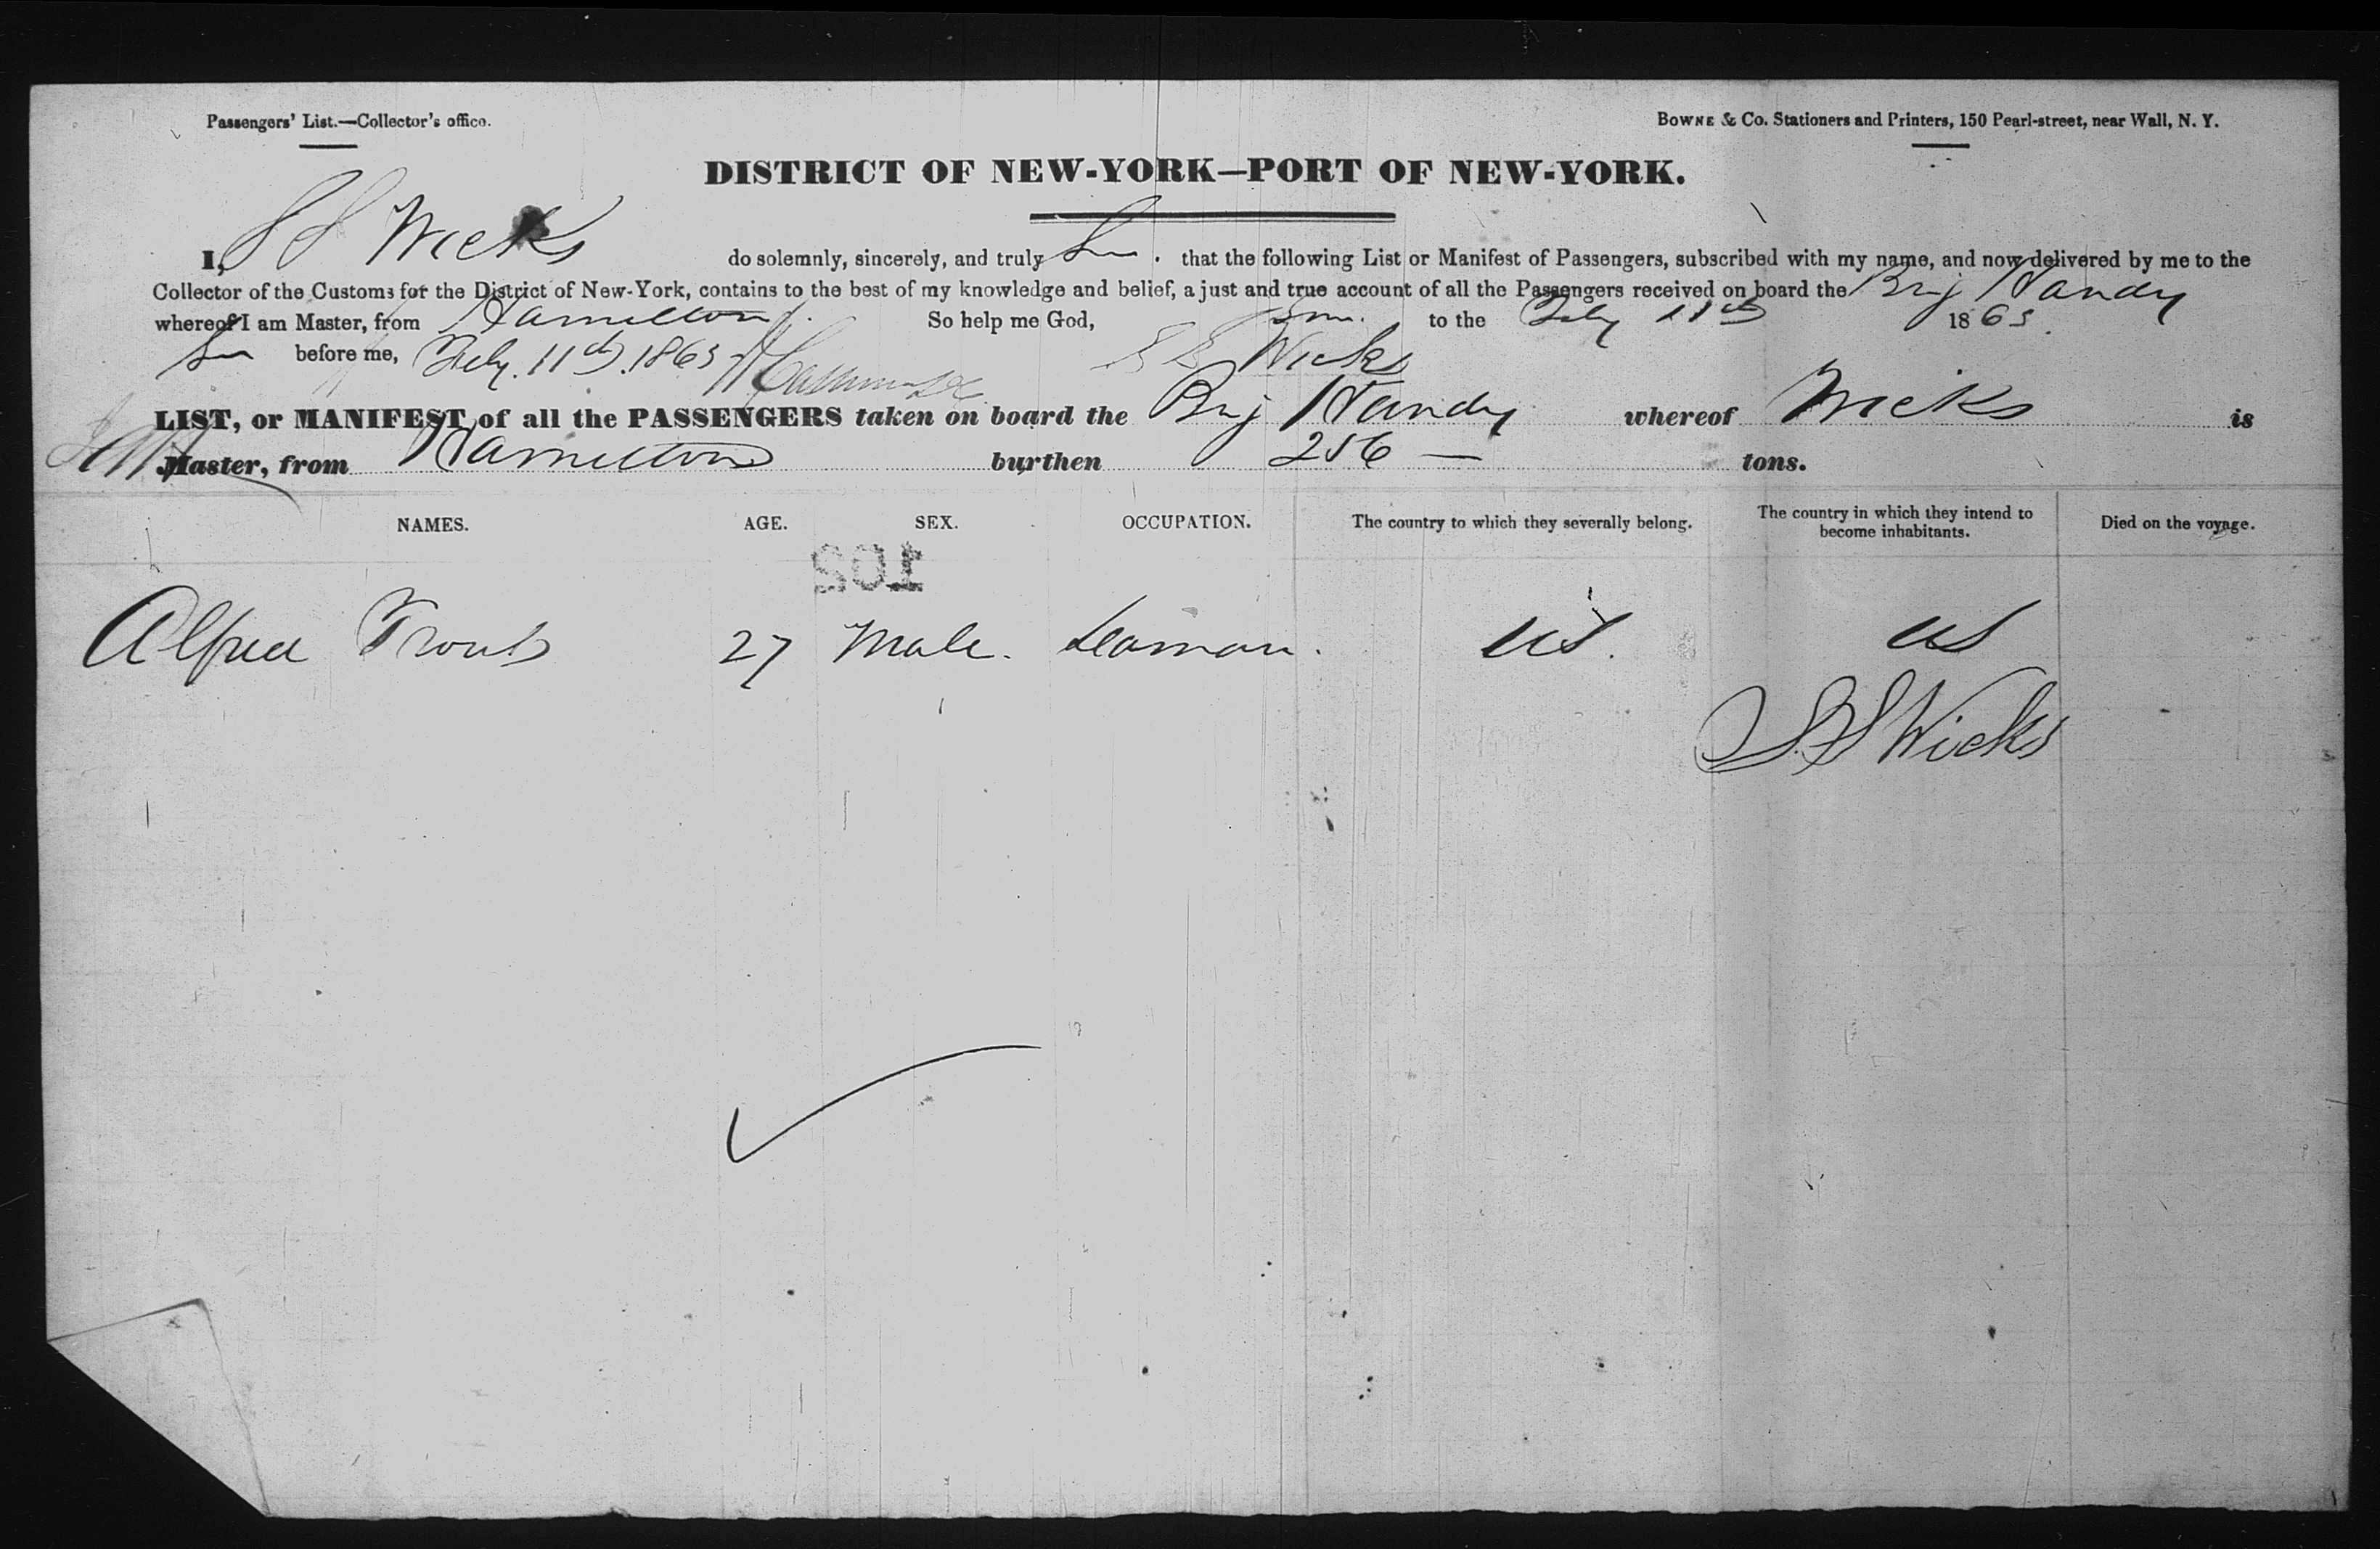 Passengers' List.—Collector's office.
BOWNE & Co. Stationers and Printers, 150 Pearl-street, near Wall, N. Y.
DISTRICT OF NEW-YORK—PORT OF NEW-YORK.
I, S S Wicks do solemnly, sincerely, and truly that the following List or Manifest of Passengers, subscribed with my name, and now delivered by me to the
Collector of the Customs for the District of New-York, contains to the best of my knowledge and belief, a just and true account of all the Passengers received on board the Brig Handy
whereof I am Master, from Hamilton So help me God, to the Feby 11th 1863.
before me, Feby. 11th 1863 Wicks
LIST, or MANIFEST of all the PASSENGERS taken on board the Brig Handy whereof Wicks is
Master, from Hamilton burthen 256 — tons.
NAMES. AGE. SEX. OCCUPATION. The country to which they severally belong. The country in which they intend to become inhabitants. Died on the voyage.
102
Alfred 27 Male. Seaman. US. US
S S Wicks